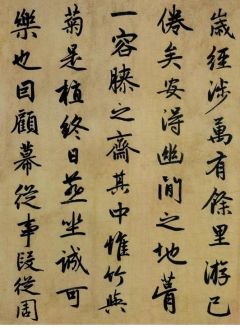 歲經涉萬有餘里游已
倦矣安得幽閒之地葺
一容膝之齋其中惟竹與
菊是植終日燕坐誠可
樂也回顧幕從事從周